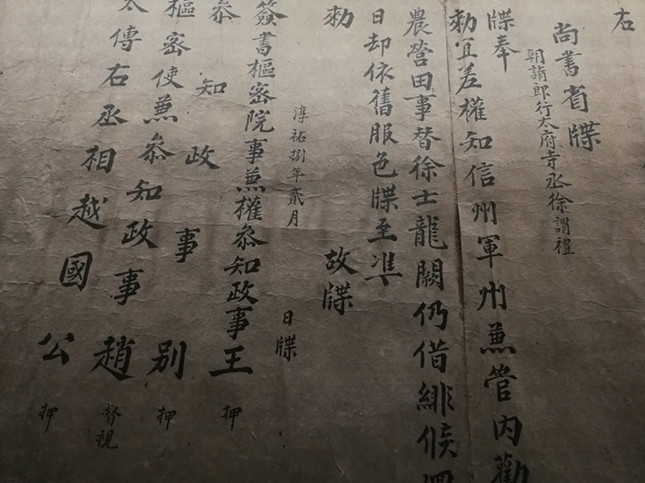 右
尚書省牒
朝請郎行太府寺丞徐謂禮
牒奉
勑宜差權知信州軍州兼管内勸
農營田事替徐士龍闕仍借緋候
日却依舊服色牒至準
勑 故牒
淳祐捌年貳月 日牒
簽書樞密院事兼權叅知政事王 押
叅知政事別 押
樞密使兼叅知政事趙 督視
傅右丞相越國公 押